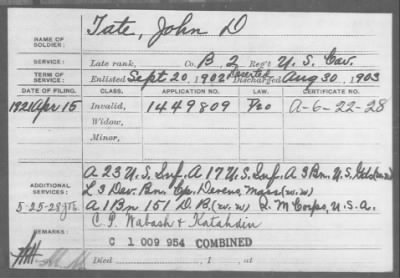 NAME OF SOLDIER: Tate, John D
SERVICE: Late rank, Co. B, 2 Reg't U.S. Cav.
TERM OF SERVICE: Enlisted Sept 20, 1902 Deserted Discharged Aug 30, 1903
DATE OF FILING. CLASS. APPLICATION NO. LAW. CERTIFICATE NO.
1921 Apr 15 Invalid, 1449809 A-6-22-28
Widow,
Minor,
A 23 U.S. Inf, A 17 U.S. Inf, A 3 Bn, U.S. Gds (w.w)
ADDITIONAL SERVICES: L 3 Dev. Bn. Cp. Devens, Mass (w.w)
5-25-28 A 1 Bn 151 D.B. (w.w) Q. M Corps, U.S.A.
REMARKS: C.P. Wabash & Katahdin
C 1 009 954 COMBINED
Died , 1 , at